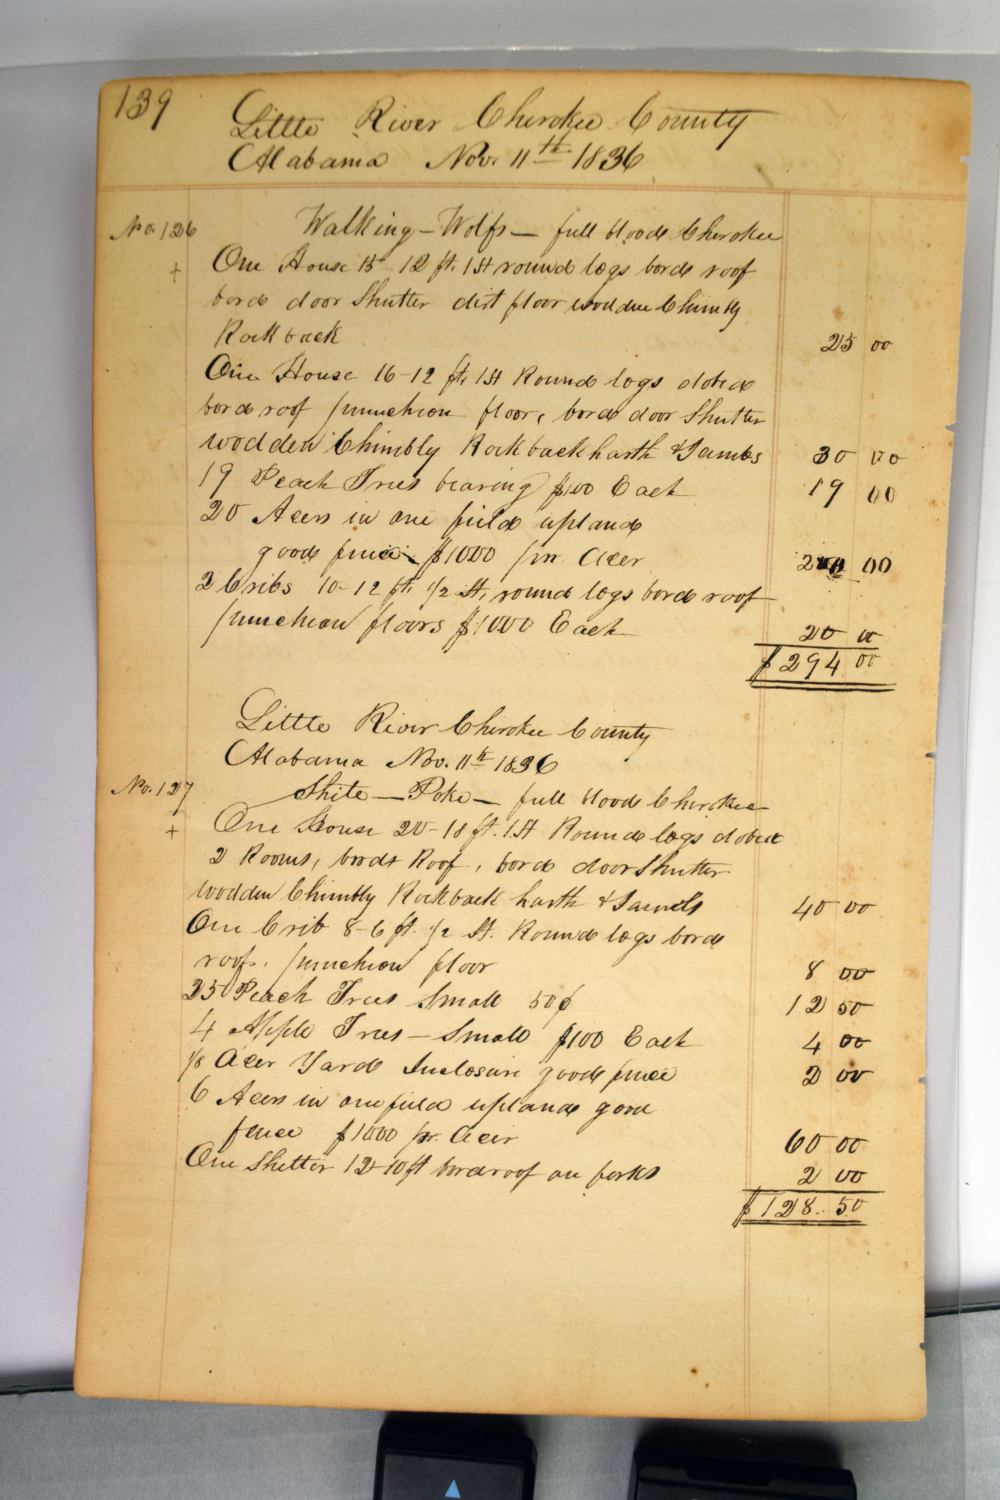 139
Little River Cherokee County
Alabama Nov. 11th 1836
No. 126 Walking-Wolfs — full blood Cherokee
+ One House 15-12 ft. 1 St round logs bord roof
bord door Shutter dirt floor wooden Chimbly
Rock back 25 00
One House 16-12 ft. 1 St Round logs dobed
bord roof puncheon floor, bord door Shutter
wodden Chimbly Rock back harth & Jambs 30 00
19 Peach Trees bearing $100 Each 19 00
20 Acers in one field upland
good fence $1000 pr. Acer 200 00
2 Cribs 10-12 ft. 1/2 St, round logs bord roof
puncheon floors $1000 Each 20 00
$294 00
Little River Cherokee County
Alabama Nov. 11th 1836
No. 127 Shite-Poke — full blood Cherokee
+ One House 20-18 ft. 1 St Round logs dobed
2 Rooms, bord Roof, bord door Shutter
wodden Chimbly Rock back harth & Jambs 40 00
One Crib 8-6 ft. 1/2 St. Round logs bord
roof, puncheon floor 8 00
25 Peach Trees Small 50¢ 12 50
4 Apple Trees — Small $100 Each 4 00
1/8 Acer Yard Inclosure good fence 2 00
6 Acers in one field upland good
fence $1000 pr. Acer 60 00
One Shelter 12-10 ft bord roof on forks 2 00
$128.50